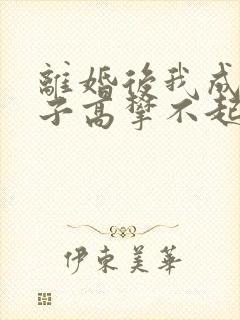 離婚後我成
子高攀不起
伊東美華